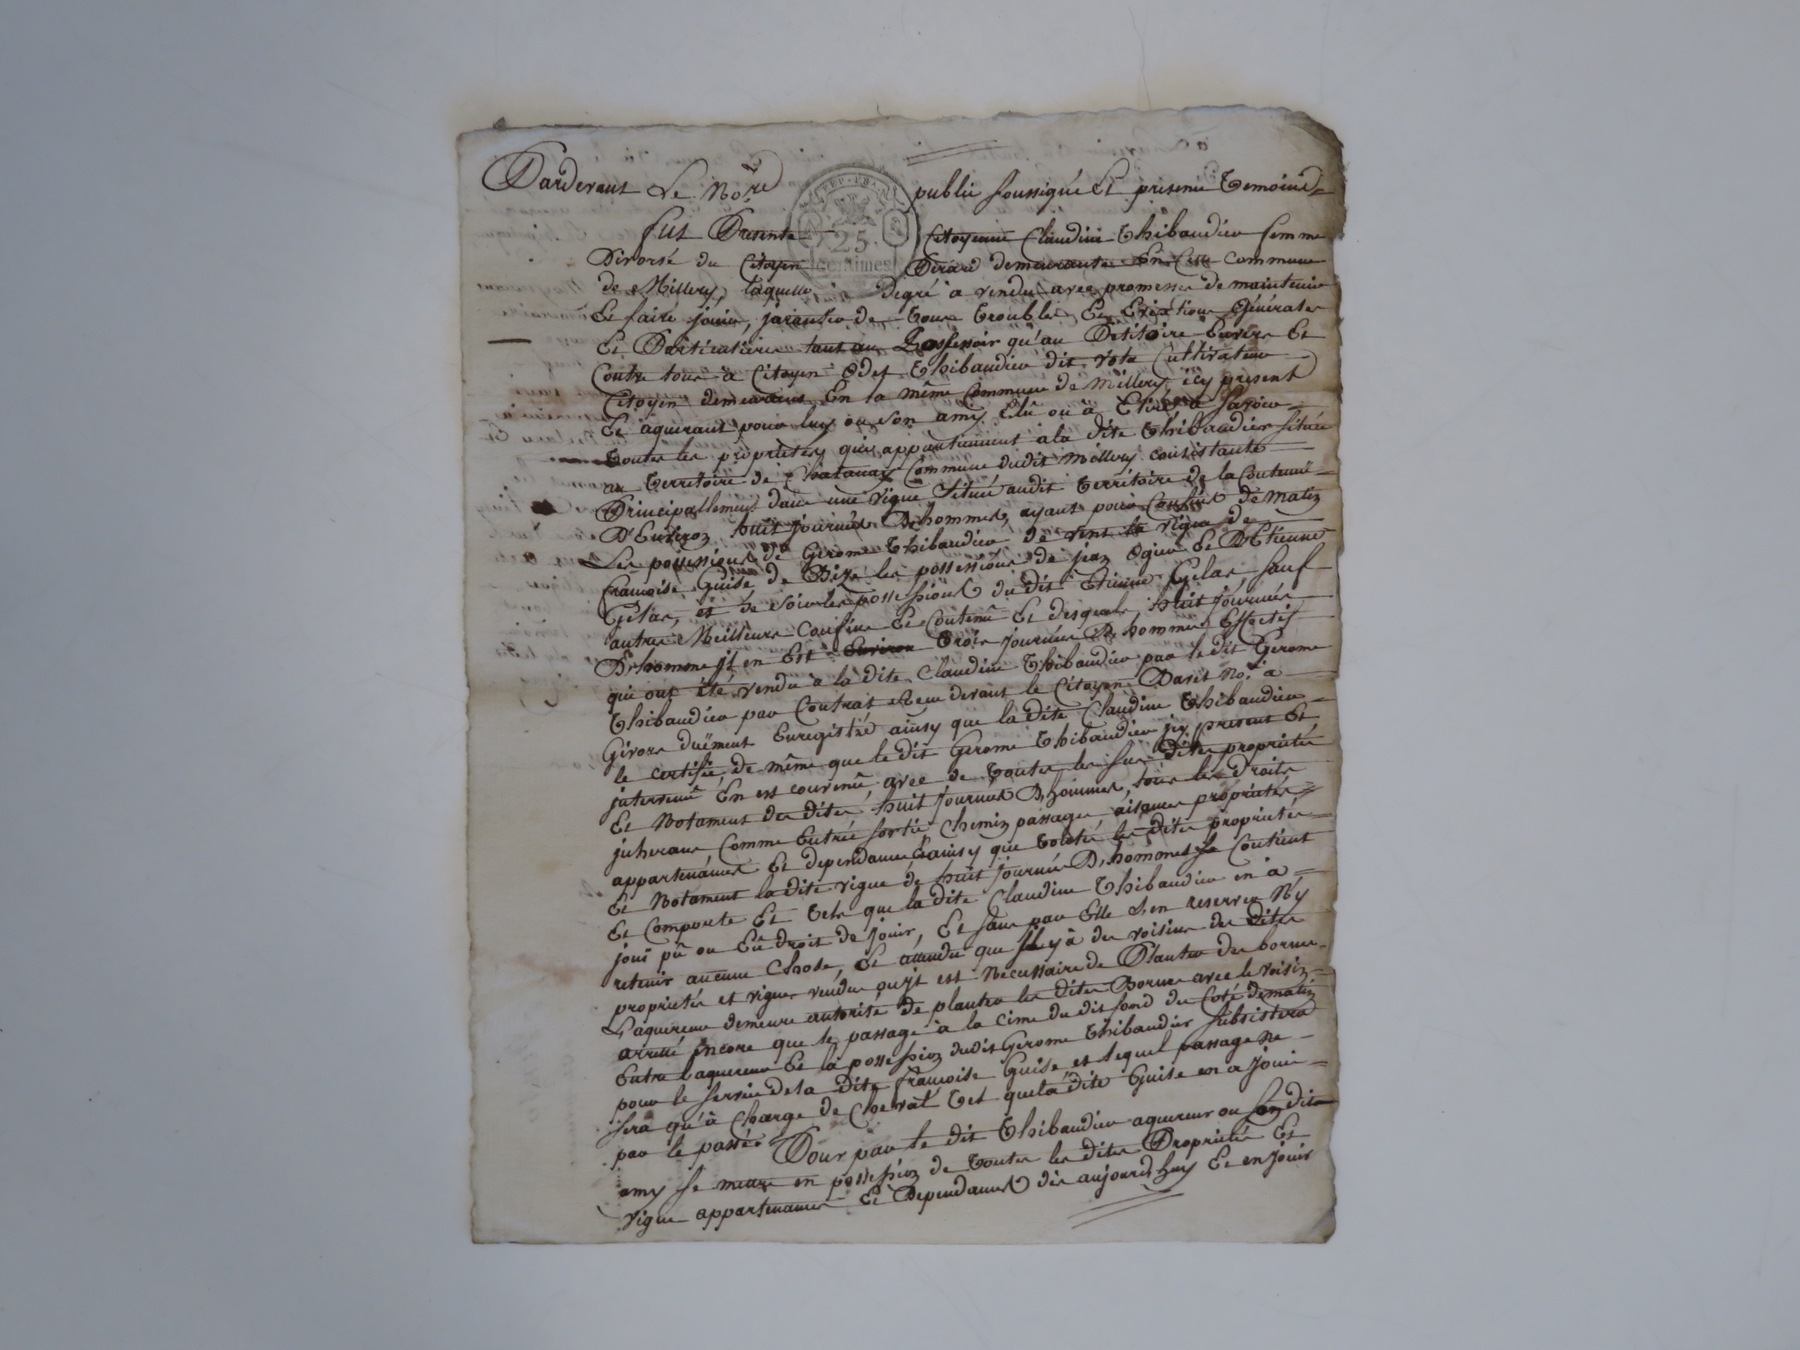 Pardevant Le No.re public soussigné Et presence Temoins
REP. FRA.
25.
centimes
fut Presente Citoyenne Claudine Thibaudier femme
Divorsé du Citoyen Girard demeurante En Cette Commune
de Millery, laquelle degré a vendu avec promesse de maintenir
Et faire jouir, jarantir de Tous Troubles Et Evictions Générales
Et Particulières tant au Possessoir qu'au Petitoire Envers Et
Contre tous à Citoyen Odet Thibaudier dit Cultivateur
Citoyen demeurant En la même Commune de Millery icy present
Et aquerant pour luy ou son amy Elû ou à Elire a sçavoir
Toutes les proprietés qui appartiennent à la dite Thibaudier située
au Territoire de Chatanay Commune dudit Millery consistante
Principallement dans une vigne située audit Territoire de la Contenüe
D'Environ huit journées D,hommes, ayant pour Confins de matin
Les possessions de Gerome Thibaudier de vent la vigne de
françoise Guise de Bize les possessions de jean Ogier Et D'Etienne
Gelas, et de soir les possessions du dit Etienne Gelas, sauf
autres Meilleurs Confins Et Contenû Et desquels huit journées
D,homme jl en Est Environ Trois journées D,hommes Effectif
qui ont été vendu à la dite Claudine Thibaudier par le dit Gerome
Thibaudier par Contrat Receu devant le Citoyen No.e à
Givors duëment Enregistré ainsy que la dite Claudine Thibaudier
le certifie, de même que le dit Gerome Thibaudier jcy present Et
jntervenû En est convenû, avec de Toutes les sus dites proprietés
Et Notament des dites huit journées D,hommes, tous les droits
juherans Comme Entrée sortie, Chemin passages aisances proprietés
appartenances Et dependances Et ainsy que les dites proprietés
Et Notament la dite vigne de huit journées D,hommes se Contient
Et Comporte Et Tels que la dite Claudine Thibaudier en à
joui pû ou Eû droit de jouir, Et sans par Elle s'en reserver N'y
retenir aucune Chose, Et attendu que jl y à des voisins des dites
proprietés et vignes vendus qu'jl est Necessaire de Planter des bornes
L'aquereur demeure autorité de planter les dites Bornes avec le voisin
arreté Encore que le passage à la cime du dit fond du Coté de matin
Entre l'aquereur Et la possession dudit Gerome Thibaudier subsistera
pour le service de la dite françoise Guise et lequel passage ne
sera qu'à Charge de Cheval Tel que la dite Guise en a joui
par le passé. Pour par le dit Thibaudier aquereur ou son dit
amy se mettre en possession de Toutes les dites Proprietés Et
vigne appartenances Et Dependances dès aujourd,huy Et en jouir